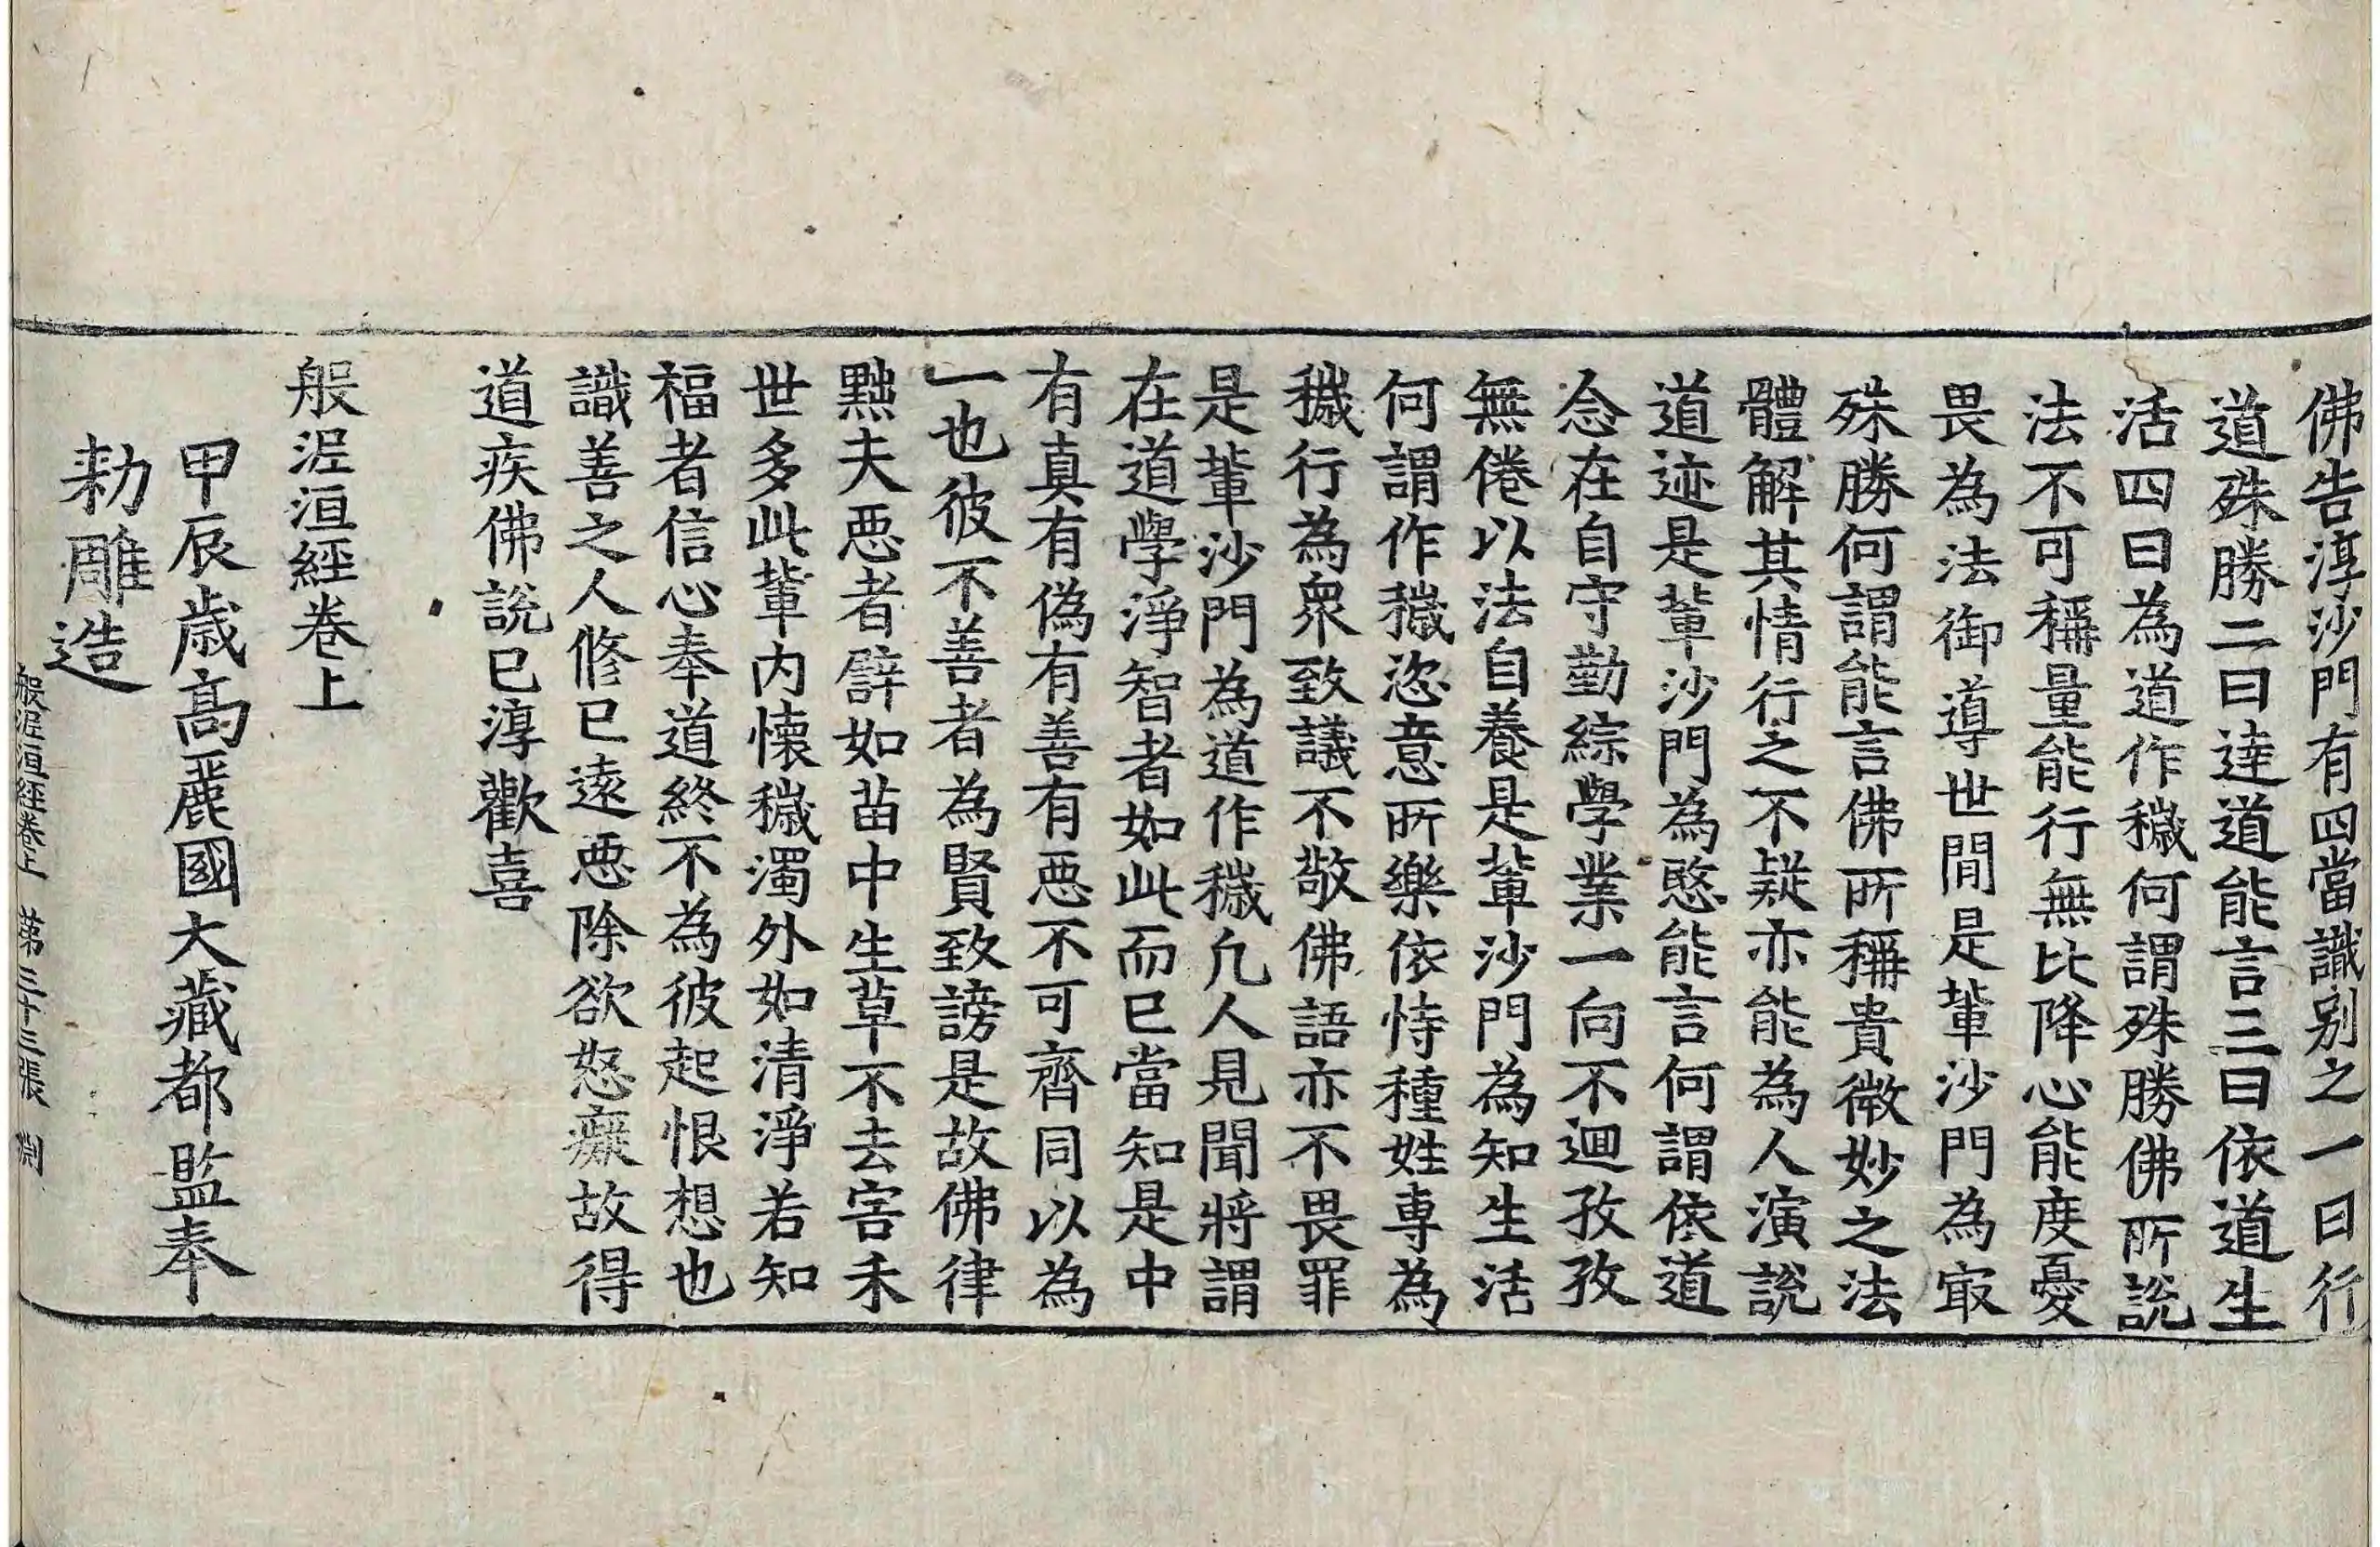 佛告淳沙門有四當識别之一曰行
道殊勝二曰達道能言三曰依道生
活四曰為道作穢何謂殊勝佛所說
法不可稱量能行無比降心能度憂
畏為法御導世間是軰沙門為㝡
殊勝何謂能言佛所稱貴微妙之法
體解其情行之不疑亦能為人演說
道迹是軰沙門為愍能言何謂依道
念在自守勤綜學業一向不迴孜孜
無倦以法自養是軰沙門為知生活
何謂作穢恣意所樂依恃種姓專為
穢行為衆致議不敬佛語亦不畏罪
是軰沙門為道作穢凡人見聞將謂
在道學淨智者如此而已當知是中
有真有偽有善有惡不可齊同以為
一也彼不善者為賢致謗是故佛律
黜夫惡者譬如苗中生草不去害禾
世多此軰内懷穢濁外如清淨若知
福者信心奉道終不為彼起恨想也
識善之人修已遠惡除欲怒癡故得
道疾佛說已淳歡喜
般泥洹經卷上
甲辰歲高麗國大藏都監奉
勑雕造
般泥洹經卷上 第三十三張 淵